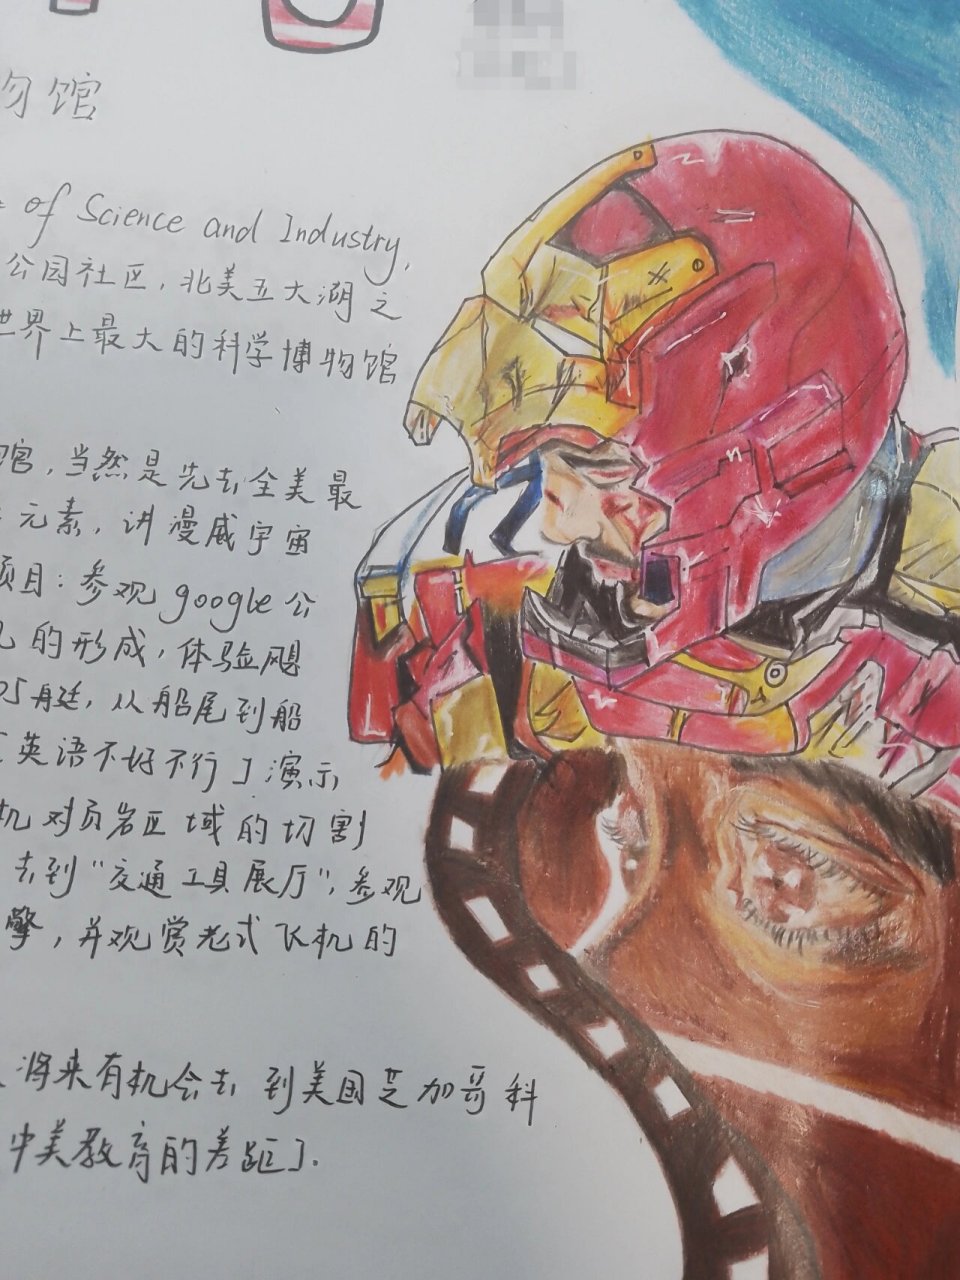 物馆
of Science and Industry,
公园社区,北美五大湖之
世界上最大的科学博物馆
馆,当然是先去全美最
元素,讲漫威宇宙
项目:参观google公
的形成,体验飓
艇,从船尾到船
英语不好不行」演示
机对页岩区域的切割
去到"交通工具展厅",参观
擎,并观赏老式飞机的
将来有机会去到美国芝加哥科
中美教育的差距」.